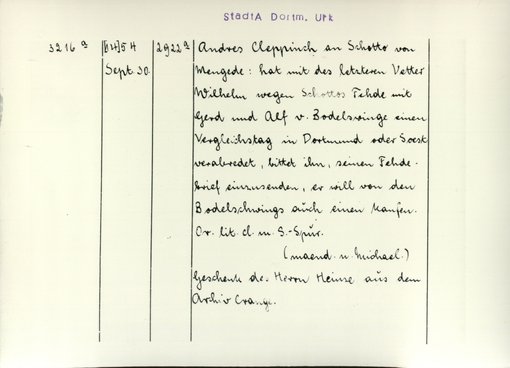 StadtA Dortm. Urk
3216a [14]54 2922a Andres Cleppinch an Schotto von
Sept. 30. Mengede: hat mit des letzteren Vetter
Wilhelm wegen Schottos Fehde mit
Gerd und Alf v. Bodelswinge einen
Vergleichstag in Dortmund oder Soest
verabredet, bittet ihn, seinen Fehde-
brief einzusenden, er will von den
Bodelschwings auch einen
Or. lit. cl. m. S.-Spur.
(maend. n. Michael.)
Geschenk des Herrn Heinse aus dem
Archiv Crange.